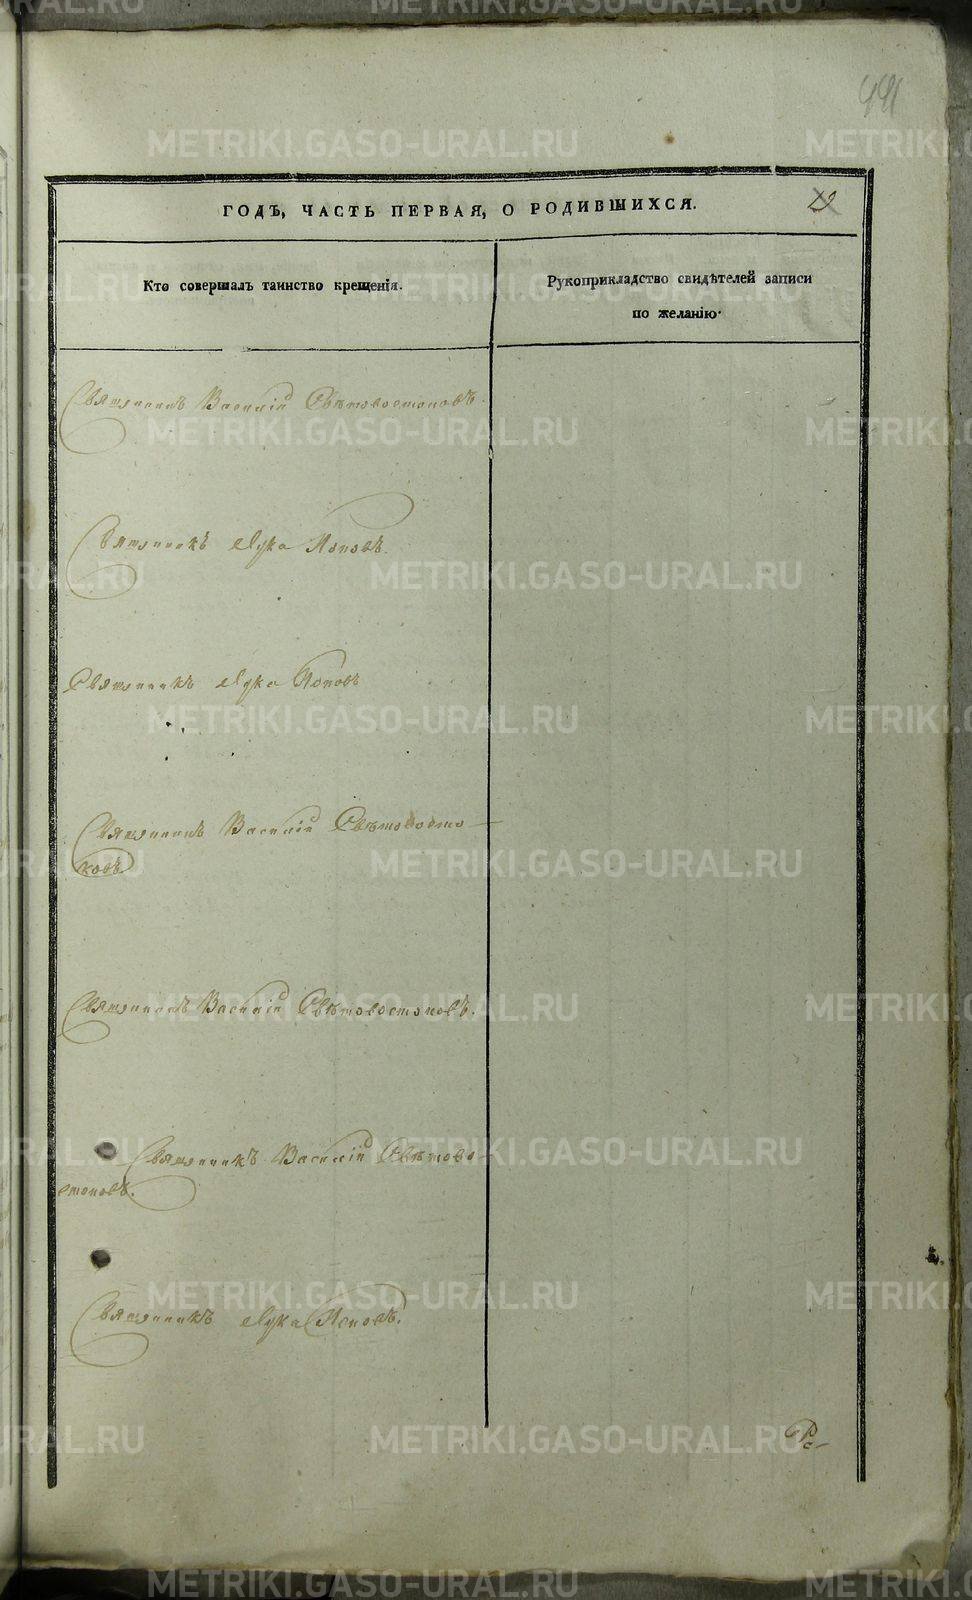 441
ГОДЪ, ЧАСТЬ ПЕРВАЯ, О РОДИВШИХСЯ.
29
Кто совершалъ таинство крещенія.
Рукоприкладство свидѣтелей записи
по желанію.
Священникъ Василій Свѣтовостоковъ.
Священникъ Лука Поповъ.
Священникъ Лука Поповъ
Священникъ Василій Свѣтовосто-
ковъ.
Священникъ Василій Свѣтовостоковъ.
Священникъ Василій Свѣтово-
стоковъ.
Священникъ Лука Поповъ.
METRIKI.GASO-URAL.RU